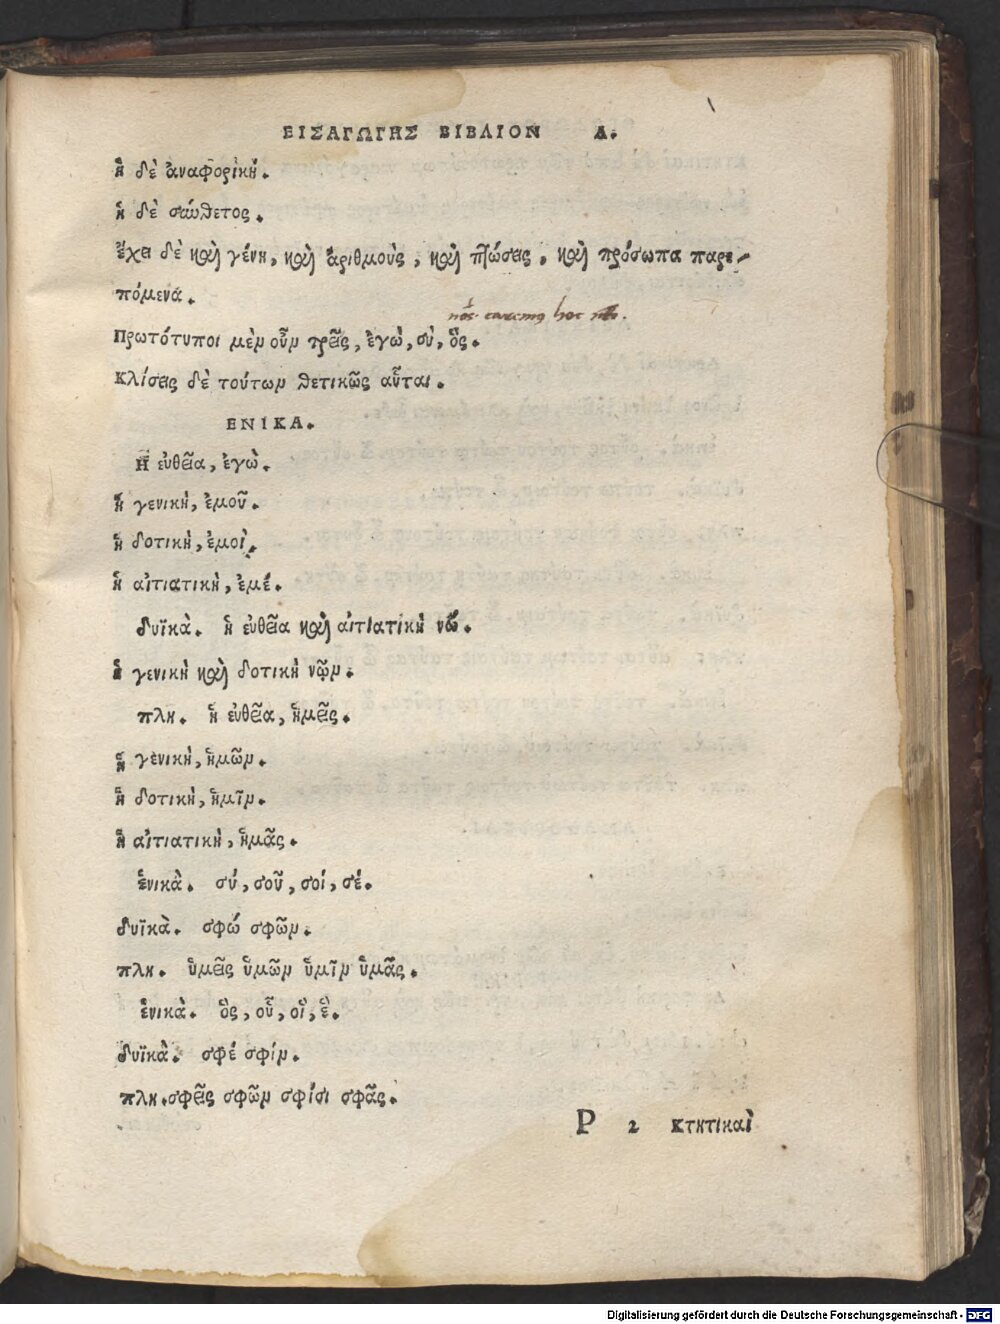 ΕΙΣΑΓΩΓΗΣ ΒΙΒΛΙΟΝ Δ.
ἡ δὲ ἀναφορικὴ.
ἡ δὲ σύνθετος.
ἔχει δὲ καὶ γένη, καὶ ἀριθμοὺς, καὶ πτώσεις, καὶ πρόσωπα παρε-
πόμενα.
Πρωτότυποι μὲν οὖν τρεῖς, ἐγὼ, σὺ, ὃς.
κλίσεις δὲ τούτων θετικῶς αὗται.
ΕΝΙΚΑ.
Ἡ εὐθεῖα, ἐγὼ.
ἡ γενικὴ, ἐμοῦ.
ἡ δοτικὴ, ἐμοὶ.
ἡ αἰτιατικὴ, ἐμέ.
δυϊκὰ. ἡ εὐθεῖα καὶ αἰτιατικὴ νῶ.
ἡ γενικὴ καὶ δοτικὴ νῷν.
πλη. ἡ εὐθεῖα, ἡμεῖς.
ἡ γενικὴ, ἡμῶν.
ἡ δοτικὴ, ἡμῖν.
ἡ αἰτιατικὴ, ἡμᾶς.
ἑνικὰ. σύ, σοῦ, σοί, σέ.
δυϊκὰ. σφώ σφῶν.
πλη. ὑμεῖς ὑμῶν ὑμῖν ὑμᾶς.
ἑνικὰ. ὃς, οὗ, οἷ, ἓ.
δυϊκὰ. σφέ σφίν.
πλη. σφεῖς σφῶν σφίσι σφᾶς.
P 2 κτητικαὶ
Digitalisierung gefördert durch die Deutsche Forschungsgemeinschaft - DFG